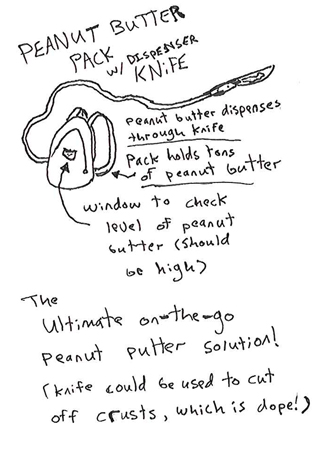 PEANUT BUTTER
PACK w/ DISPENSER
KNIFE
Peanut butter dispenses
through knife
Pack holds tons
of peanut butter
window to check
level of peanut
butter (should
be high)
The
Ultimate on-the-go
Peanut Putter solution!
(knife could be used to cut
off crusts, which is dope!)